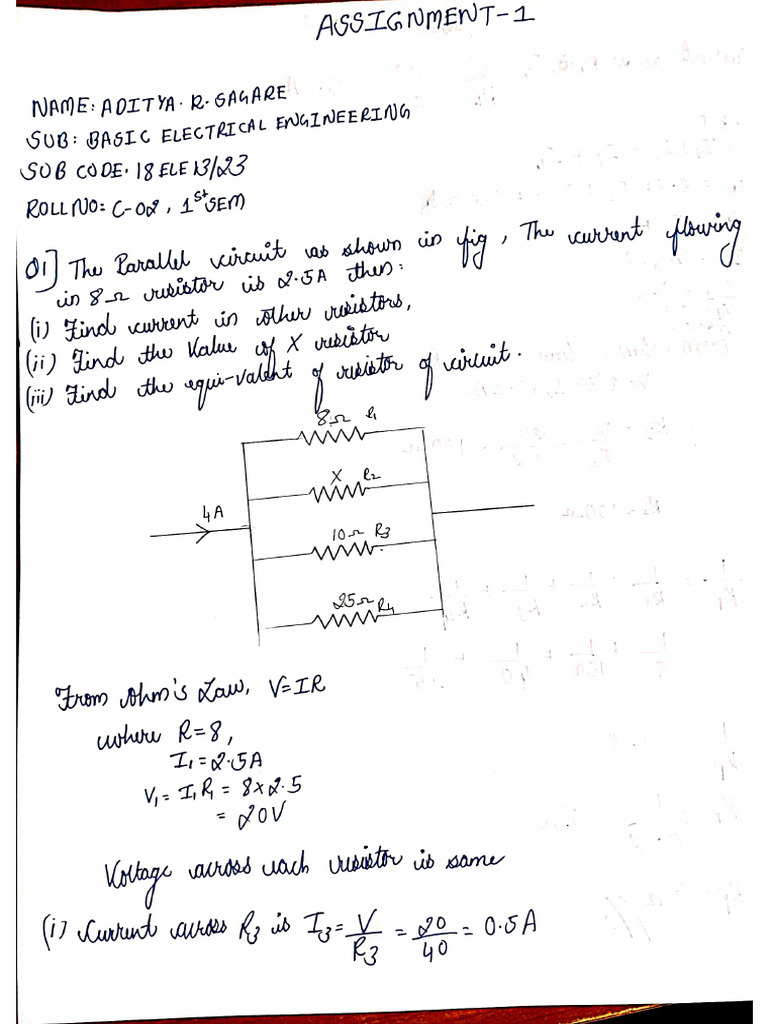 ASSIGNMENT-1
NAME: ADITYA. R. GAGARE
SUB: BASIC ELECTRICAL ENGINEERING
SUB CODE. 18ELE13/23
ROLL NO: C-02, 1st SEM
Q1] The Parallel circuit as shown in fig, The current flowing
in 8Ω resistor is 2.5A then:
(i) Find current in other resistors,
(ii) Find the Value of X resistor
(iii) Find the equi-valent of resistor of circuit.
8Ω R1
X R2
4A
10Ω R3
25Ω R4
From ohm's Law, V=IR
where R=8,
I1=2.5A
V1= I1R1 = 8×2.5
= 20V
Voltage across each resistor is same
(i) Current across R3 is I3= V/R3 = 20/40 = 0.5A